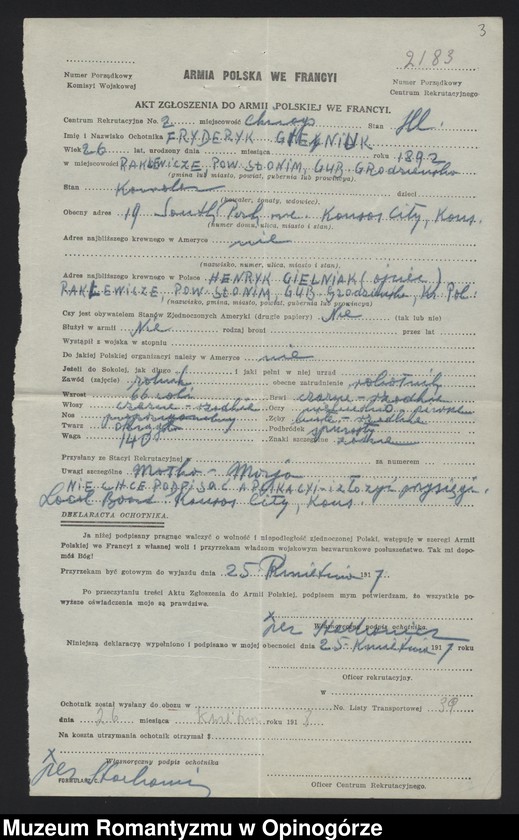 3
2183
Numer Porządkowy
Komisyi Wojskowej
ARMIA POLSKA WE FRANCYI
Numer Porządkowy
Centrum Rekrutacyjnego
AKT ZGŁOSZENIA DO ARMII POLSKIEJ WE FRANCYI.
Centrum Rekrutacyjne No. 2 miejscowość Stan Ill.
Imię i Nazwisko Ochotnika FRYDERYK
Wiek 26 lat, urodzony dnia miesiąca roku 1892
w miejscowości POW. SŁONIM, GUB. Grodzieńska
(gmina lub miasto, powiat, gubernia lub prowincya).
Stan Kawaler dzieci
(kawaler, żonaty, wdowiec).
Obecny adres 19 South Park ave. Kansas City, Kans.
(numer domu, ulica, miasto i stan).
Adres najbliższego krewnego w Ameryce nie
(nazwisko, numer, ulica, miasto i stan).
Adres najbliższego krewnego w Polsce HENRYK GIELNIAK (ojciec)
POW. SŁONIM, GUB. Grodzieńska, Pol.
(nazwisko, gmina, miasto lub powiat, gubernia lub prowincya).
Czy jest obywatelem Stanów Zjednoczonych Ameryki (drugie papiery) Nie (tak lub nie)
Służył w armii Nie rodzaj broni przez lat
Wystąpił z wojska w stopniu
Do jakiej Polskiej organizacyi należy w Ameryce nie
Jeżeli do Sokołej, jak długo I jaki pełnił w niej urząd
Zawód (zajęcie) rolnik obecne zatrudnienie robotnik
Wzrost 66 cali Brwi
Włosy Oczy
Nos Zęby
Twarz okrągła Podbródek
Waga 140 Znaki szczególne żadne
Przysłany ze Stacyi Rekrutacyjnej za numerem
Uwagi szczególne Matka - Marja
NIE CHCE PODPISAĆ APLIKACYI - i złożyć przysięgi.
Local Board Kansas City, Kans.
DEKLARACYA OCHOTNIKA.
Ja niżej podpisany pragnąc walczyć o wolność i niepodległość zjednoczonej Polski, wstępuję w szeregi Armii
Polskiej we Francyi z własnej woli i przyrzekam władzom wojskowym bezwarunkowe posłuszeństwo. Tak mi dopo-
móż Bóg!
Przyrzekam być gotowym do wyjazdu dnia 25 Kwietnia 191
Po przeczytaniu treści Aktu Zgłoszenia do Armii Polskiej, podpisem mym potwierdzam, że wszystkie po-
wyższe oświadczenia moje są prawdziwe.
Własnoręczny podpis ochotnika.
Niniejszą deklaracyę wypełniono i podpisano w mojej obecności dnia 25 Kwietnia 191 roku
Oficer rekrutacyjny.
w
Ochotnik został wysłany do obozu w No. Listy Transportowej 39
dnia 26 miesiąca roku 1918
Na koszta utrzymania ochotnik otrzymał $
Własnoręczny podpis ochotnika
Oficer Centrum Rekrutacyjnego.
Muzeum Romantyzmu w Opinogórze